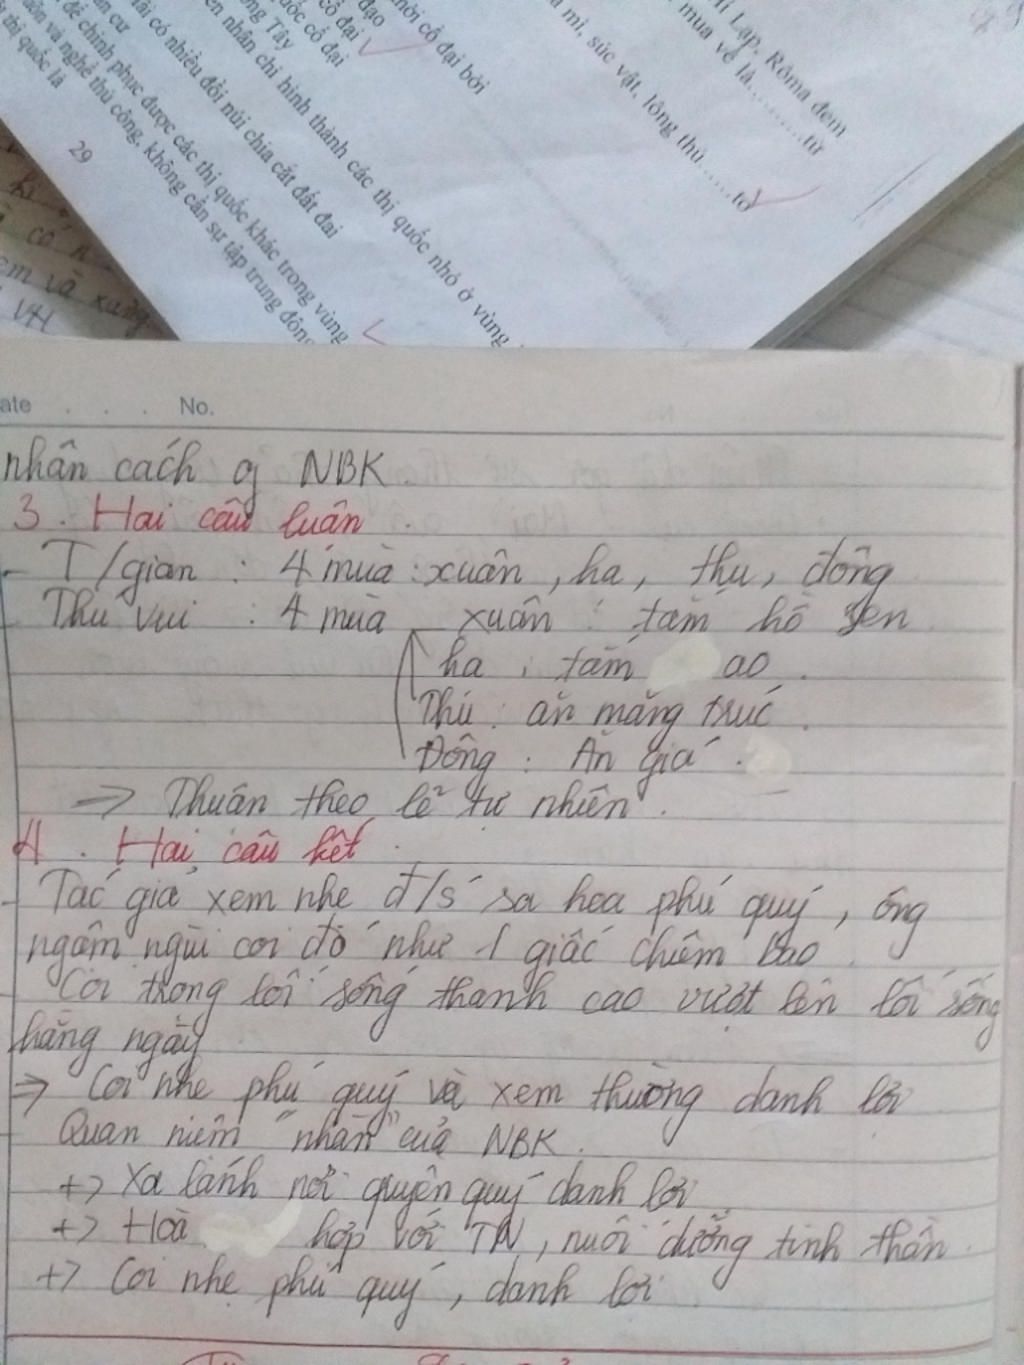 mì, súc vật, lông thú ...... tơ
Lạp, Rôma đem
mua về là ............ từ
đạo
cổ đại
quốc cổ đại
thời cổ đại bởi
nên nhân chỉ hình thành các thị quốc nhỏ ở vùng
có nhiều đồi núi chia cắt đất đai
để chinh phục được các thị quốc khác trong vùng
và nghề thủ công, không cần sự tập trung đông
thị quốc là
29
Date . . . No.
nhân cách of NBK
3. Hai câu luân
- T/gian : 4 mùa : xuân, ha, thu, đông
Thú vui : 4 mùa xuân : tăm hồ sen
ha : tắm ao.
Thú : ăn măng trúc.
Đông : Ăn giá.
=> Thuân theo lẽ tự nhiên.
4. Hai câu kết.
- Tác giả xem nhe đ/s sa hoa phú quý, ông
ngâm ngùi coi đó như 1 giấc chiêm bao.
Coi trong lối sống thanh cao vượt lên lối sống
hằng ngày
=> Coi nhẹ phú quý và xem thường danh lợi
Quan niêm "nhàn" của NBK.
+> Xa lánh nơi quyền quý danh lợi
+> Hoà hợp với TN, nuôi dưỡng tinh thần.
+> Coi nhẹ phú quý, danh lợi